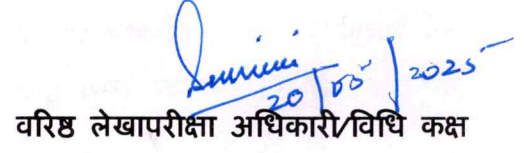 20/08/2025
वरिष्ठ लेखापरीक्षा अधिकारी/विधि कक्ष